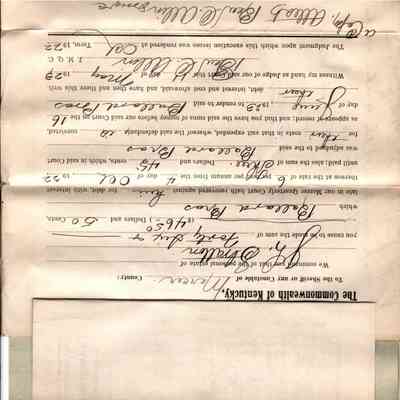 The Commonwealth of Kentucky,
To the Sheriff or any Constable of Mercer County:
We command you that of the personal estate of
J. H. Stratton
you cause to be made the sum of Forty Six &
($ 46 50 ) Dollars and 50 Cents
which Ballard Bros
late in our Mercer Quarterly Court recovered against him for debt, with interest
thereon at the rate of 6 per cent per annum from the 4 day of Oct 1922
until paid; also the sum of Three Dollars and 45 cents, which in said Court
was adjudged to the said Ballard Bros
for their costs in that suit expended, whereof the said defendant is convicted,
as appears of record; and that you have the said sums of money before our said Court on the 16
day of June 1923 to render to said Ballard Bros
their debt, interest and costs aforesaid, and have then and there this writ.
Witness my hand as Judge of our said Court this day of May 1923
Ben C. Allin J. M. Q. C.
The Judgment upon which this execution issues was rendered at Oct Term, 1922
a Copy. Attest: Ben C. Allin